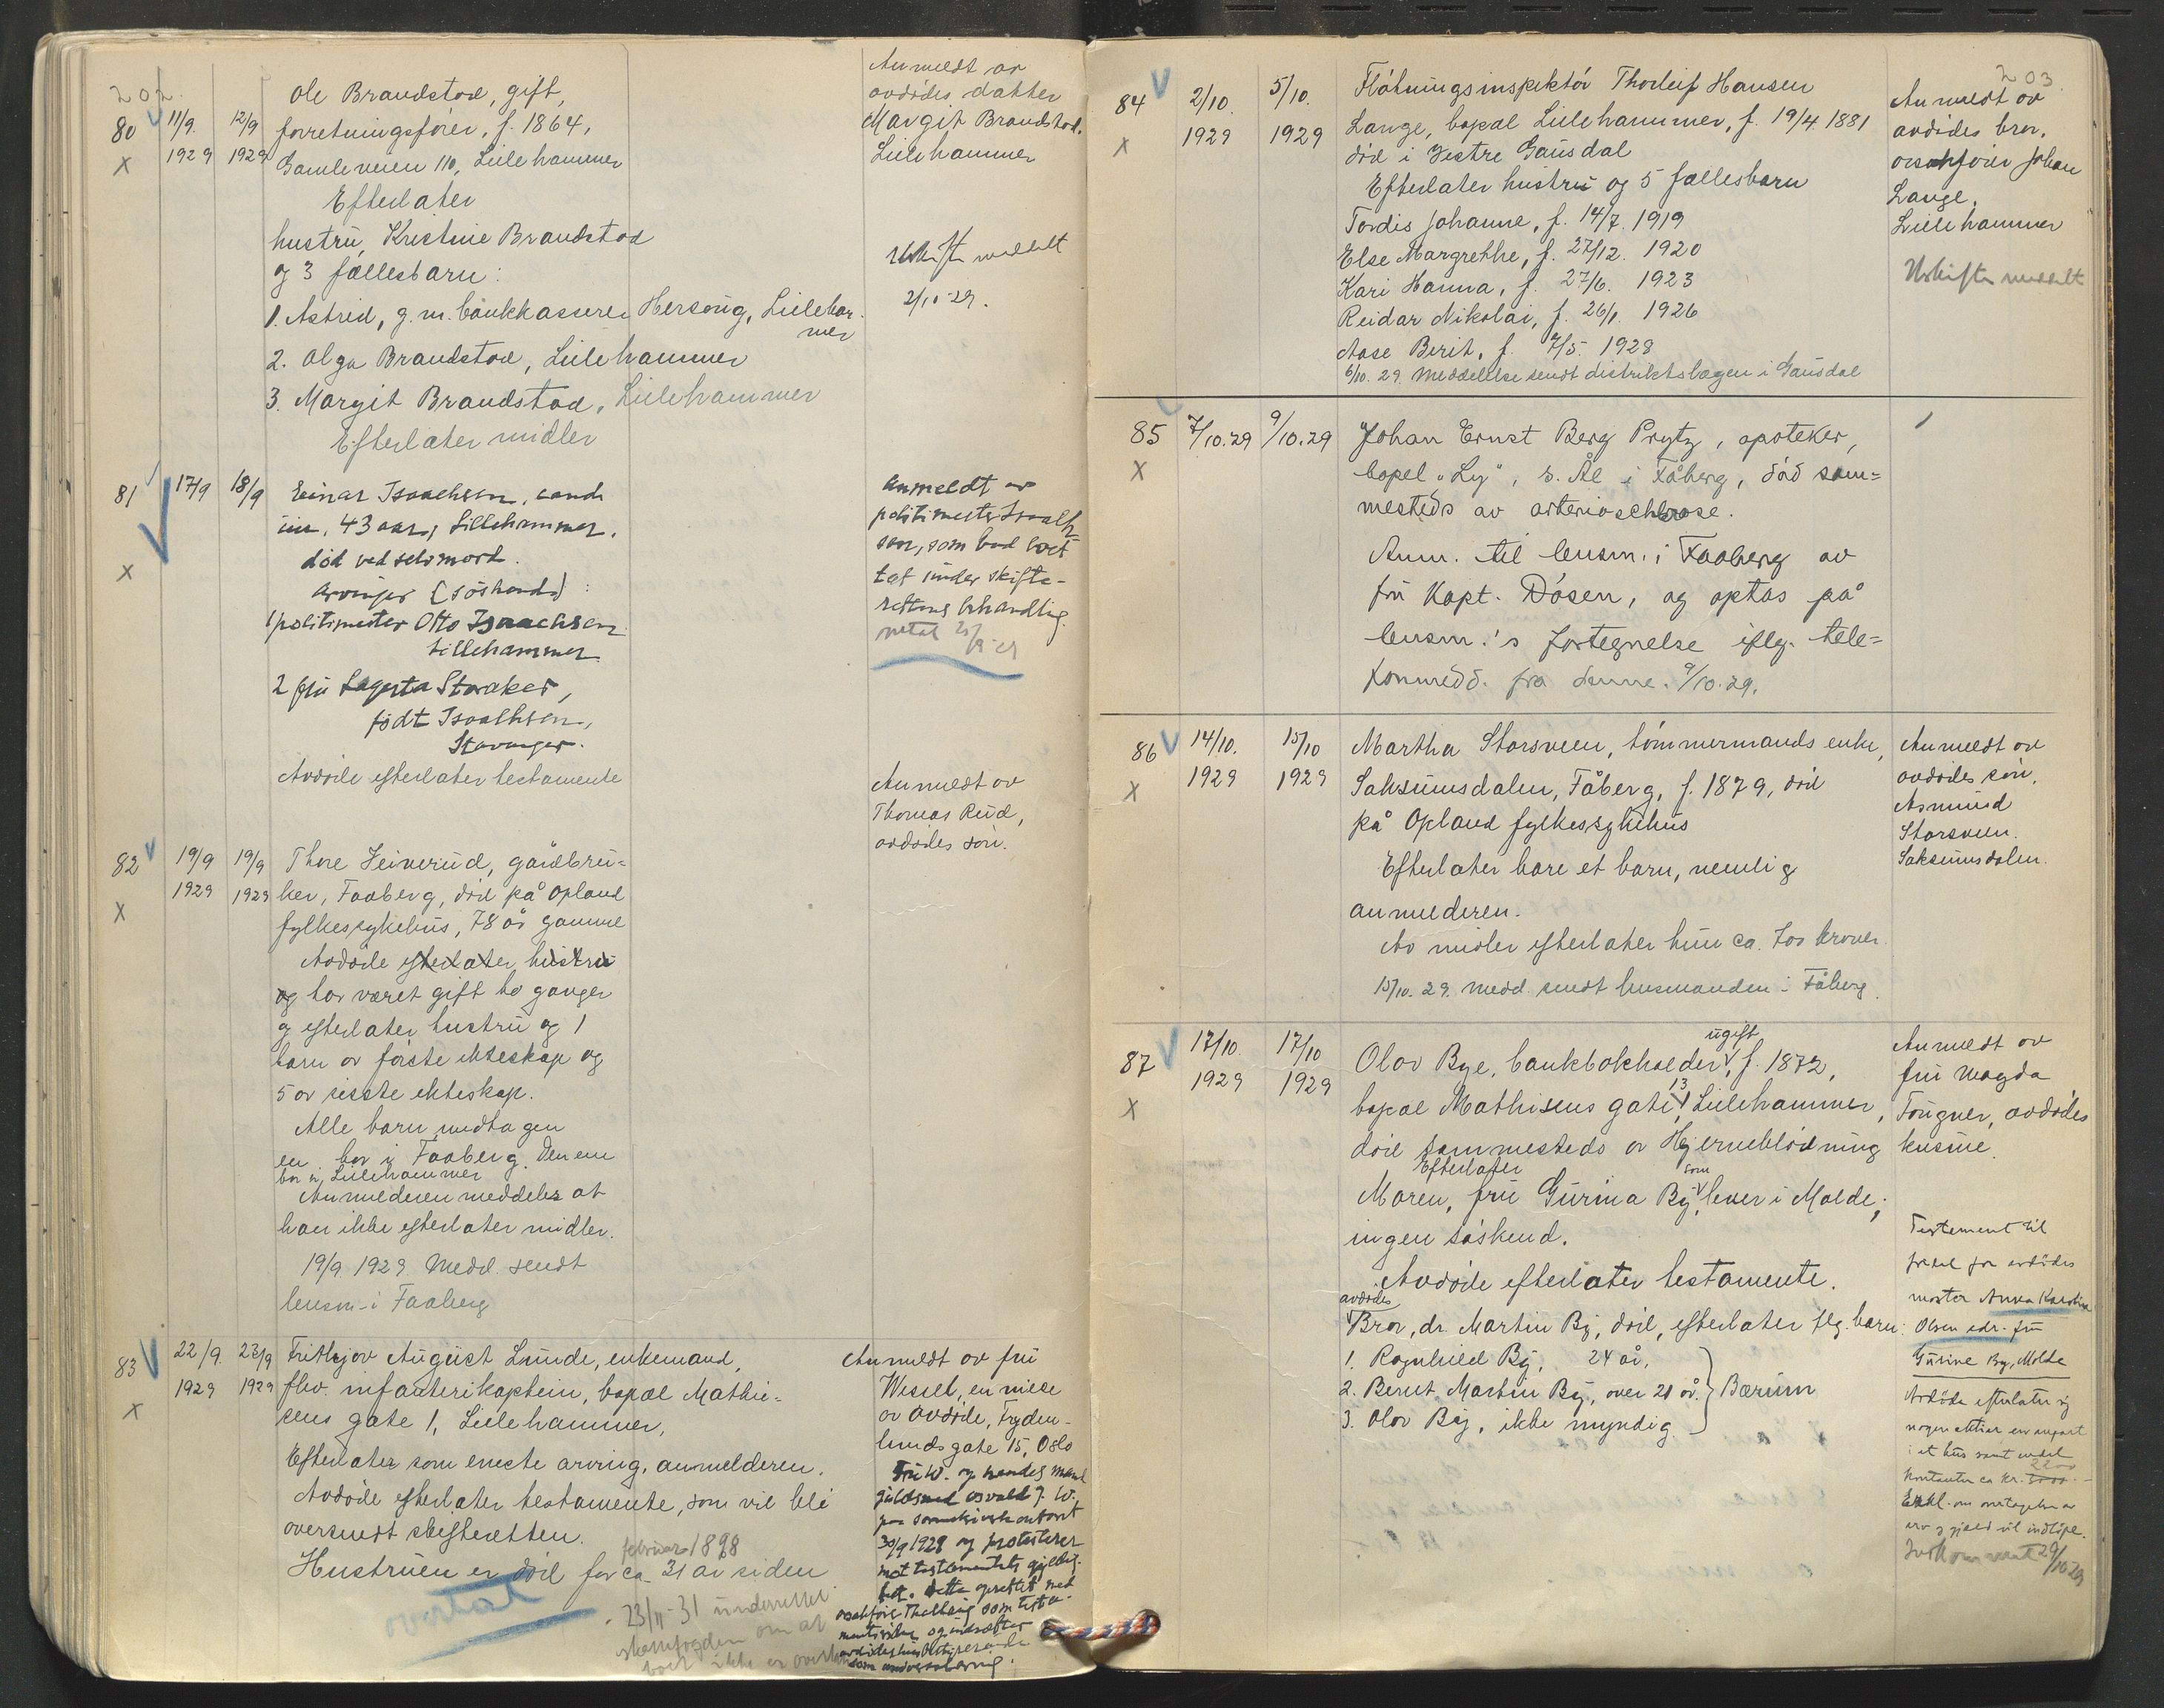 202.
80 11/9. 12/9 Ole Brandstad, gift,
1929 1929 forretningsfører, f. 1864,
X Gamleveien 110, Lillehammer
Efterlater
hustru, Kristine Brandstad
og 3 fællesbarn:
1. Astrid, g. m. bankkasserer Hersoug, Lillehammer
2. Olga Brandstad, Lillehammer
3. Margit Brandstad, Lillehammer
Efterlater midler
Anmeldt av
avdødes datter
Margit Brandstad,
Lillehammer
Uskifte meddelt
2/10-29.
81 17/9 18/9 Einar Isaachsen, cand.
X 43 aar, Lillehammer,
død ved selvmord.
Arvinger (søskend):
1 politimester Otto Isaachsen
Lillehammer
2 fru Lagerta Storaker,
født Isaachsen,
Stavanger.
Avdøde efterlater testamente
Anmeldt av
politimester Isaach-
sen, som bad boet
tat under skifte-
rettens behandling.
82 19/9 19/9 Thore Veiverud, gårdbru-
1929 1929 ker, Faaberg, død på Opland
X fylkessykehus, 78 år gammel
Avdøde efterlater hustru
og har været gift to ganger
og efterlater hustru og 1
barn av første ekteskap og
5 av siste ekteskap.
Alle barn undtagen
en, bor i Faaberg. Den ene
bor i Lillehammer
Anmelderen meddeler at
han ikke efterlater midler.
19/9 1929 Medd. sendt
lensm. i Faaberg
Anmeldt av
Thomas Rud,
avdødes søn.
83 22/9. 23/9 Frithjov August Lunde, enkemand,
1929 1929 fhv. infanterikaptein, bopæl Mathie-
X sens gate 1, Lillehammer,
Efterlater som eneste arving, anmelderen.
Avdøde efterlater testamente, som vil bli
oversendt skifteretten.
februar 1898
Hustruen er død for ca 31 år siden
overtat
23/11-31 underrettet
om at
boet ikke er overtatt
Anmeldt av fru
Wessel, en niese
av avdøde, Fryden-
lunds gate 15, Oslo
Fru W. og hendes mand
gullsmed Osvald J. W.
paa sorenskriverkontoret
30/9 1929 og protesterer
mot testamentets gyldig-
het.
203.
84 2/10. 5/10. Fløtningsinspektør Thorleif Hansen
1929 1929 Lange, bopæl Lillehammer, f. 19/4 1881
X død i Vestre Gausdal
Efterlater hustru og 5 fællesbarn
Tordis Johanne, f. 14/7. 1919
Else Margrethe, f. 27/12. 1920
Kari Hanna, f. 27/6. 1923
Reidar Nikolai, f. 26/1. 1926
Aase Berit, f. 7/5. 1928
6/10. 29. Meddelelse sendt distriktslægen i Gausdal
Anmeldt av
avdødes bror,
orsakfører Johan
Lange,
Lillehammer
Uskifte meddelt
85 7/10.29 9/10.29 Johan Ernst Berg Prytz, apoteker,
X bopel "Ly", s. Ål i Fåberg, død sam-
mesteds av arteriosclerose.
Anm. til lensm. i Faaberg av
fru Kapt. Døsen, og optas på
lensm.'s fortegnelse iflg. tele-
fonmedd. fra denne. 9/10.29.
86 14/10. 15/10 Martha Storsveen, tømmermands enke,
1929 1929 Saksumsdalen, Fåberg, f. 1879, død
X på Opland fylkessykehus
Efterlater bare et barn, nemlig
anmelderen.
Av midler efterlater hun ca. 700 kroner.
15/10. 29. medd. sendt lensmanden i Fåberg.
Anmeldt av
avdødes søn,
Asmund
Storsveen.
Saksumsdalen.
87 17/10. 17/10 Olav Bye, bankbokholder, ugift, f. 1872,
1929 1929 bopæl Mathisens gate 13, Lillehammer,
X død sammesteds av Hjerneblødning
Efterlater
Moren, fru Gurina By, som lever i Molde;
ingen søskend.
Avdøde efterlater testamente.
avdødes
Bror, dr. Martin By, død, efterlater flg. barn:
1. Ragnhild By, 24 år.
2. Bernt Martin By, over 21 år. Bærum
3. Olav By, ikke myndig.
Anmeldt av
fru Magda
Fougner, avdødes
kusine.
Testement til
fordel for avdødes
moster Anna Karoline
Olsen edr. fru
Gurine By, Molde
Avdøde efterlater sig
nogen aktier en anpart
i et hus samt endel
kontanter ca kr. 2200.-
Erkl. om overtagelse av
arv og gjæld vil indløpe.